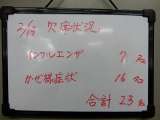 2/13 欠席状況
インフルエンザ 7名
かぜ様症状 16名
合計 23名